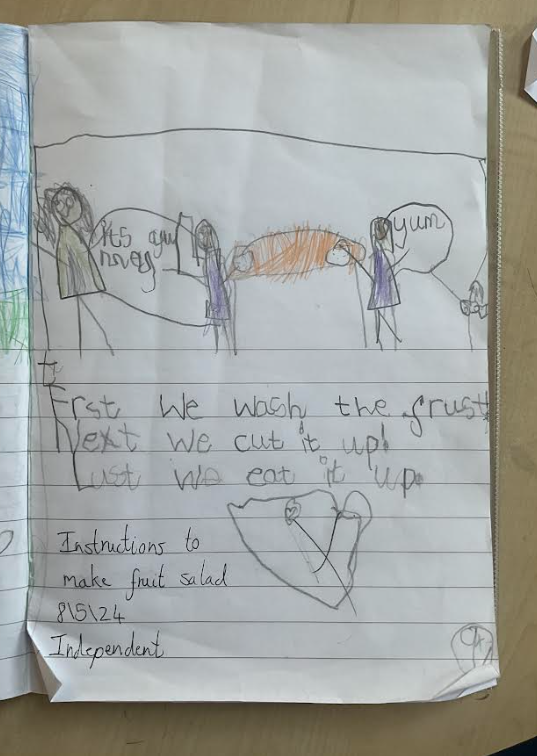 its
yum
Frst We wash the frust
Next we cut it up!
Last we eat it up.
Instructions to
make fruit salad
8\5\24
Independent